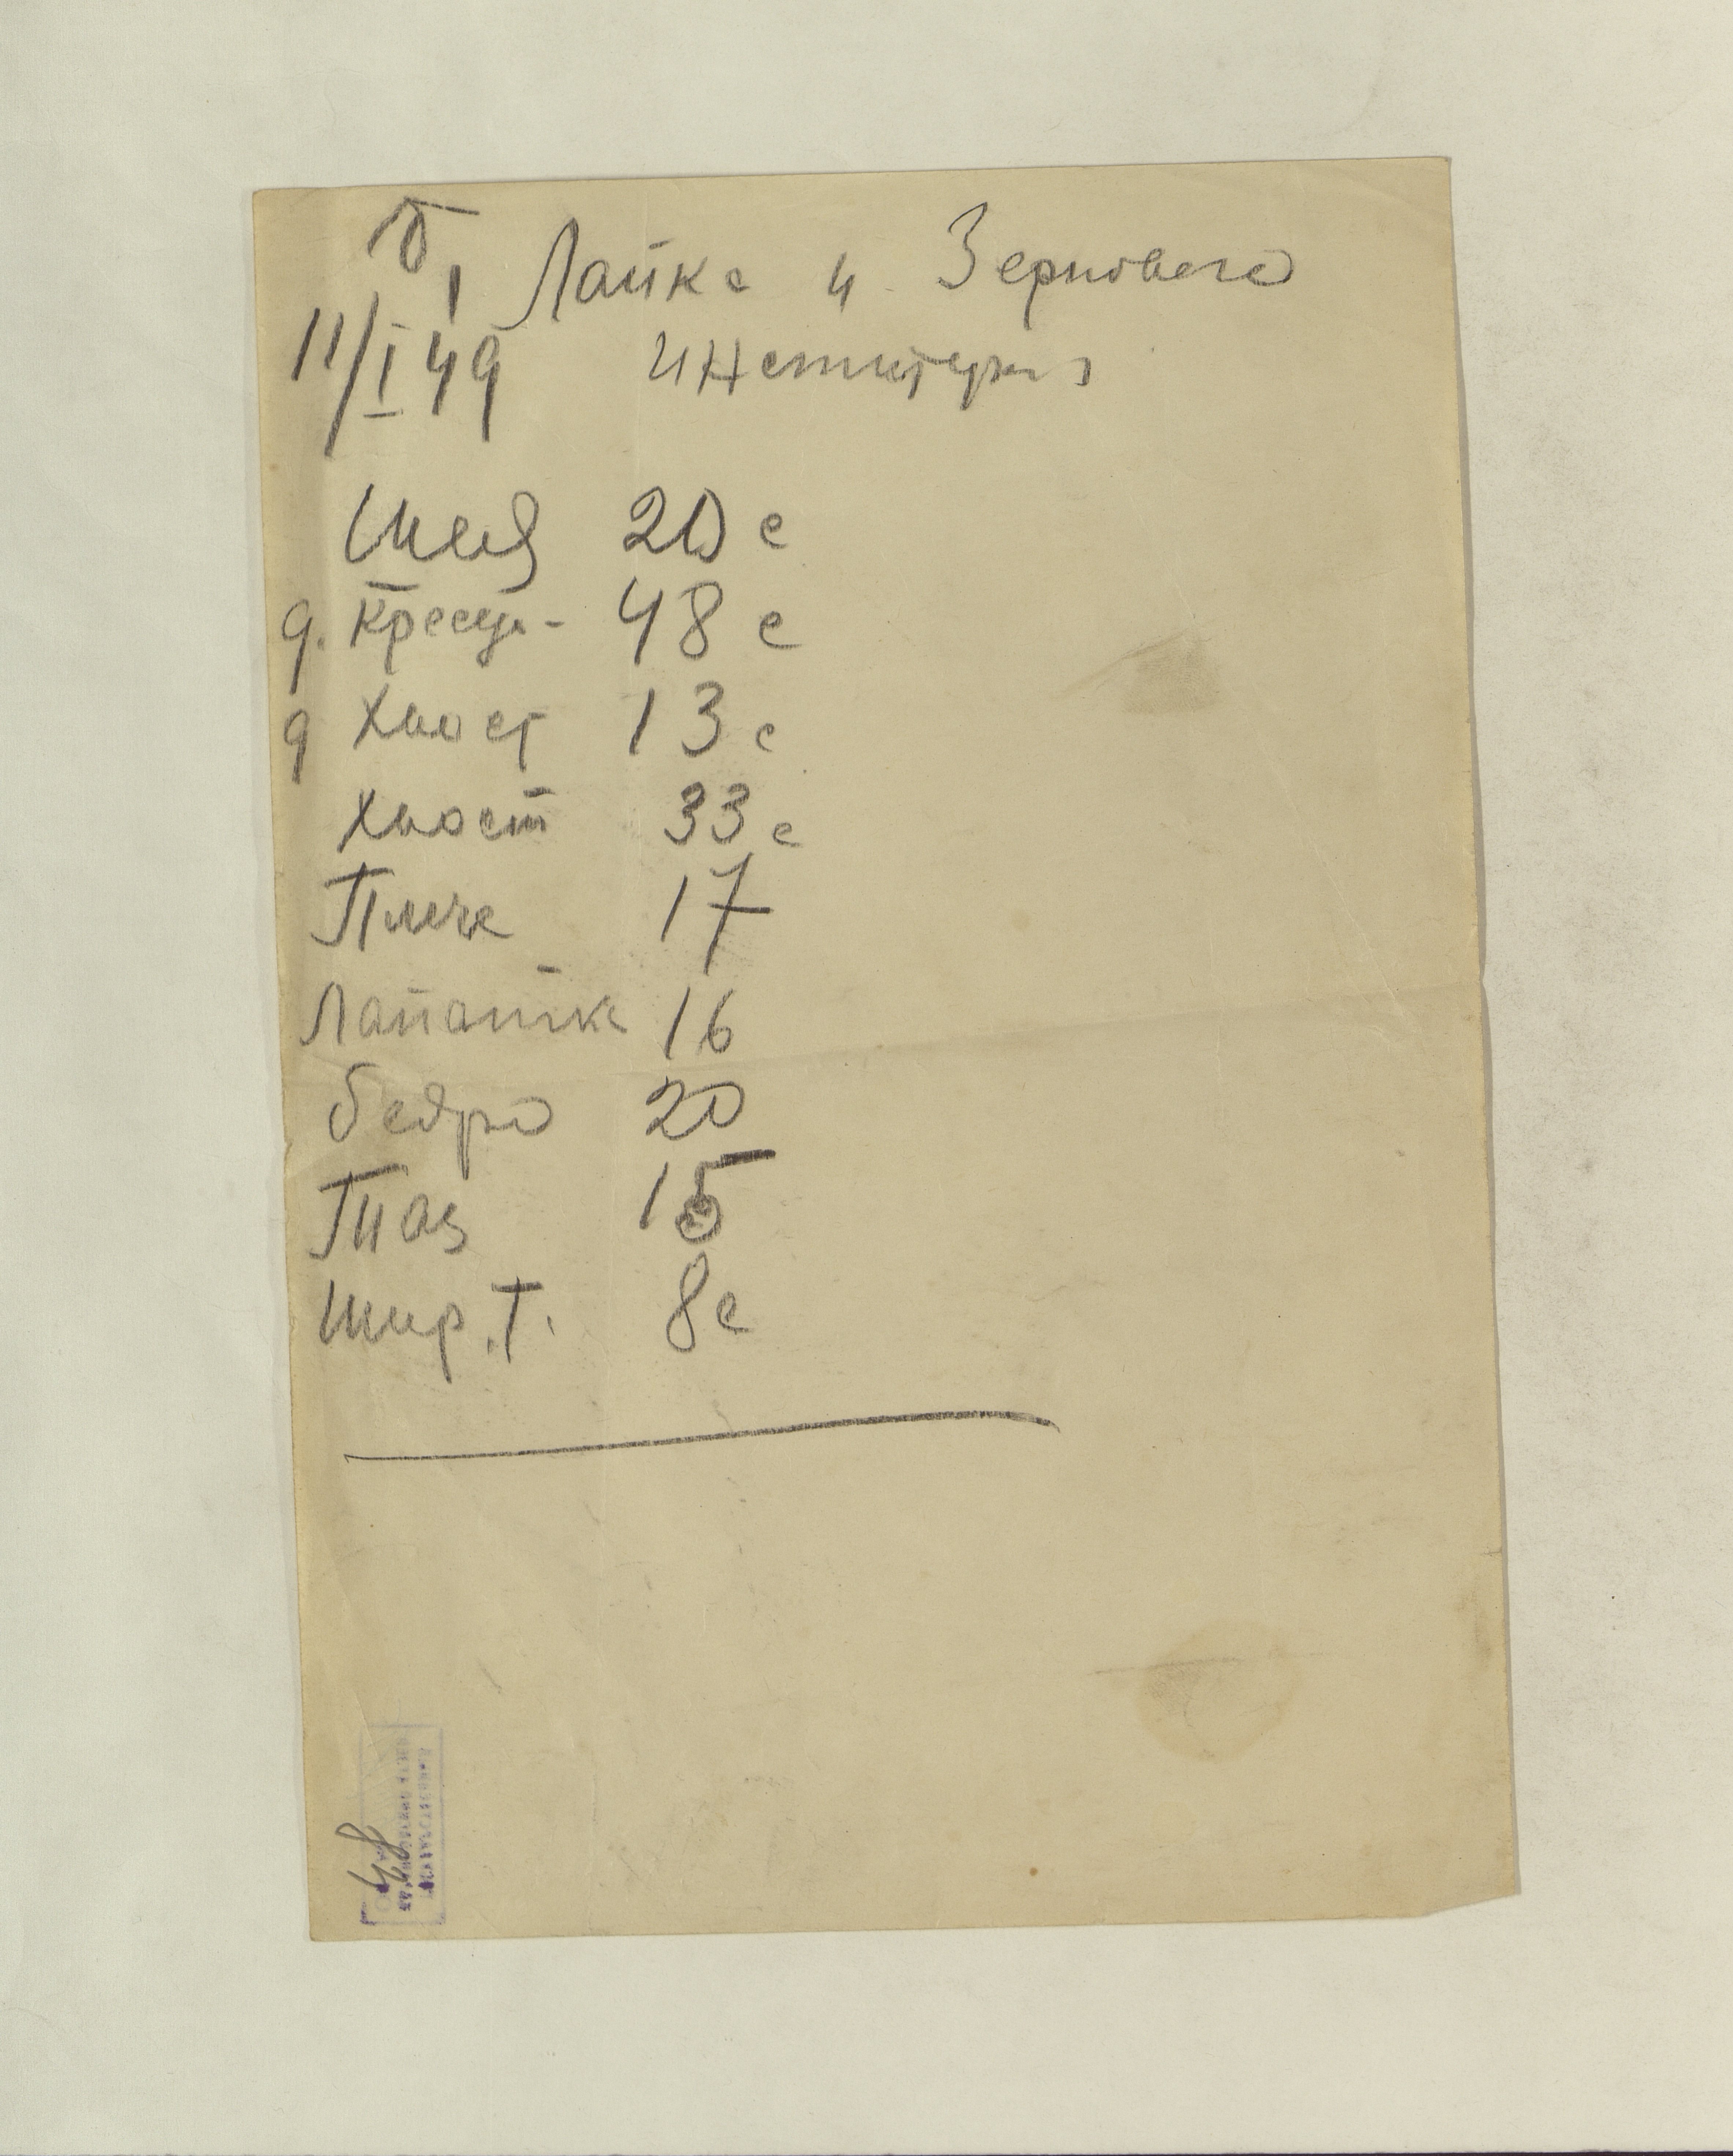 Лайка и Зернового
11/I 49 Института
Шея 20 с
g. Кресца - 48 с
g Хвост 13 с
Хвост 33 с
Плече 17
Лапатка 16
бедро 20
Таз 15
шир. т. 8 с
48